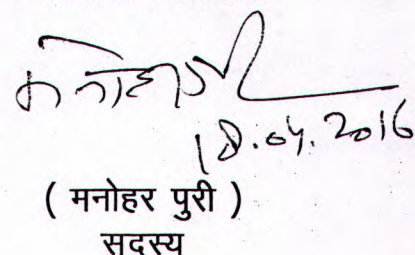 18.04.2016
( मनोहर पुरी )
सदस्य